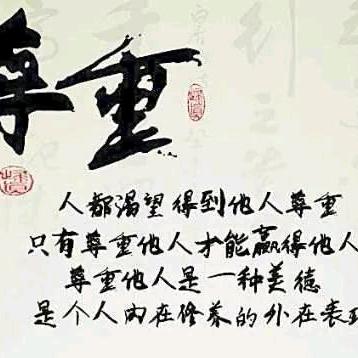 尊重
人都渴望得到他人尊重
只有尊重他人才能赢得他人
尊重他人是一种美德
是个人内在修养的外在表现